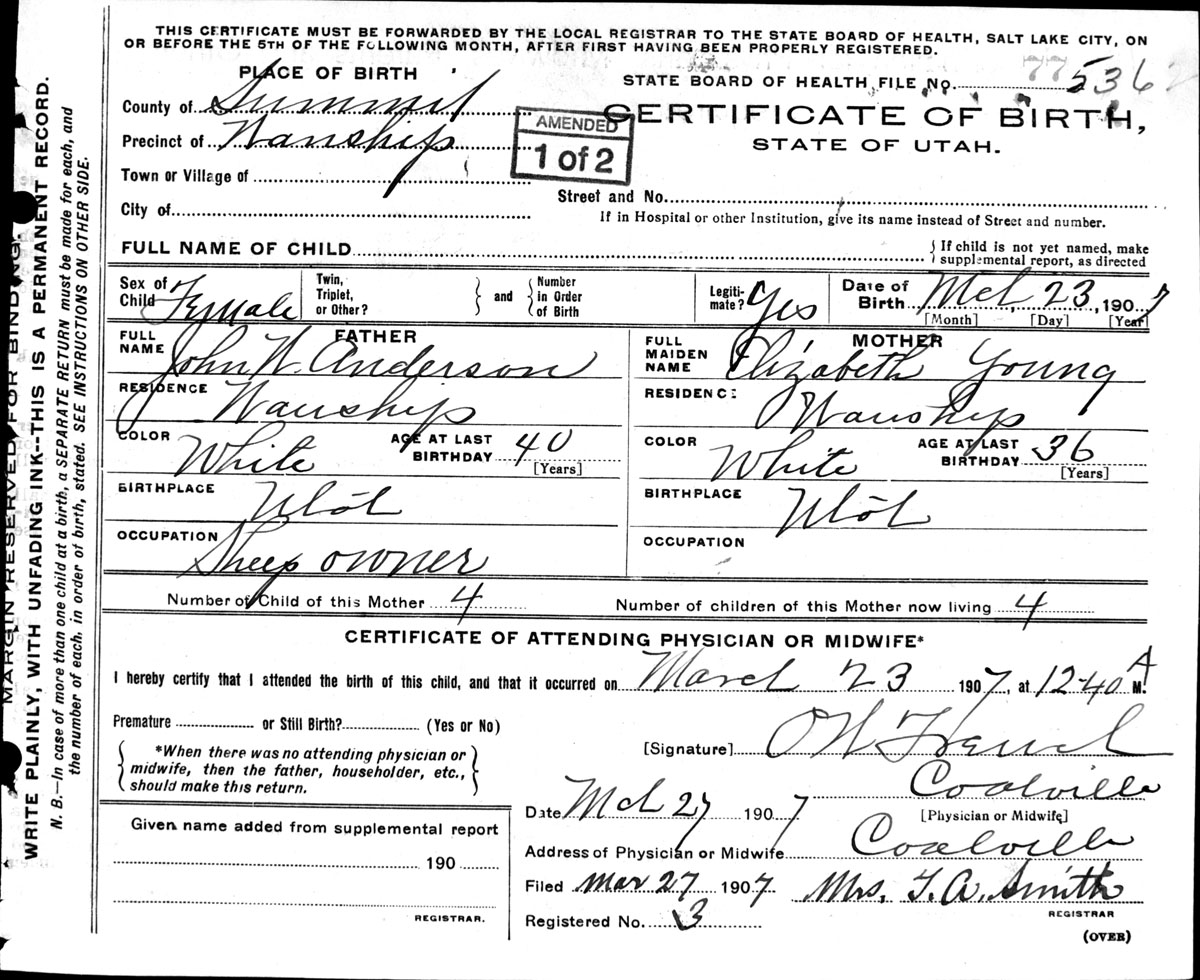 THIS CERTIFICATE MUST BE FORWARDED BY THE LOCAL REGISTRAR TO THE STATE BOARD OF HEALTH, SALT LAKE CITY, ON
OR BEFORE THE 5TH OF THE FOLLOWING MONTH, AFTER FIRST HAVING BEEN PROPERLY REGISTERED.
PLACE OF BIRTH
County of Summit
Precinct of Wanship
Town or Village of
City of
STATE BOARD OF HEALTH, FILE No. 536
CERTIFICATE OF BIRTH,
STATE OF UTAH.
AMENDED
1 of 2
Street and No.
If in Hospital or other Institution, give its name instead of Street and number.
FULL NAME OF CHILD
If child is not yet named, make
supplemental report, as directed
Sex of Child Female
Twin, Triplet, or Other?
and
Number in Order of Birth
Legiti-mate? Yes
Date of Birth Mch 23, 1907
[Month] [Day] [Year]
FATHER
FULL NAME John W. Anderson
RESIDENCE Wanship
COLOR White
AGE AT LAST BIRTHDAY 40
[Years]
BIRTHPLACE Utah
OCCUPATION Sheep owner
MOTHER
FULL MAIDEN NAME Elizabeth Young
RESIDENCE Wanship
COLOR White
AGE AT LAST BIRTHDAY 36
[Years]
BIRTHPLACE Utah
OCCUPATION
Number of Child of this Mother 4
Number of children of this Mother now living 4
CERTIFICATE OF ATTENDING PHYSICIAN OR MIDWIFE*
I hereby certify that I attended the birth of this child, and that it occurred on March 23 1907, at 12-40 A M.
Premature or Still Birth? (Yes or No)
*When there was no attending physician or
midwife, then the father, householder, etc.,
should make this return.
[Signature]
Coalville
[Physician or Midwife]
Date Mch 27 1907
Address of Physician or Midwife Coalville
Filed Mar 27 1907 Mrs. T. A. Smith
REGISTRAR
Registered No. 3
(OVER)
Given name added from supplemental report
190
REGISTRAR.
MARGIN RESERVED FOR BINDING.
WRITE PLAINLY, WITH UNFADING INK--THIS IS A PERMANENT RECORD.
N. B.—In case of more than one child at a birth, a SEPARATE RETURN must be made for each, and
the number of each, in order of birth, stated. SEE INSTRUCTIONS ON OTHER SIDE.